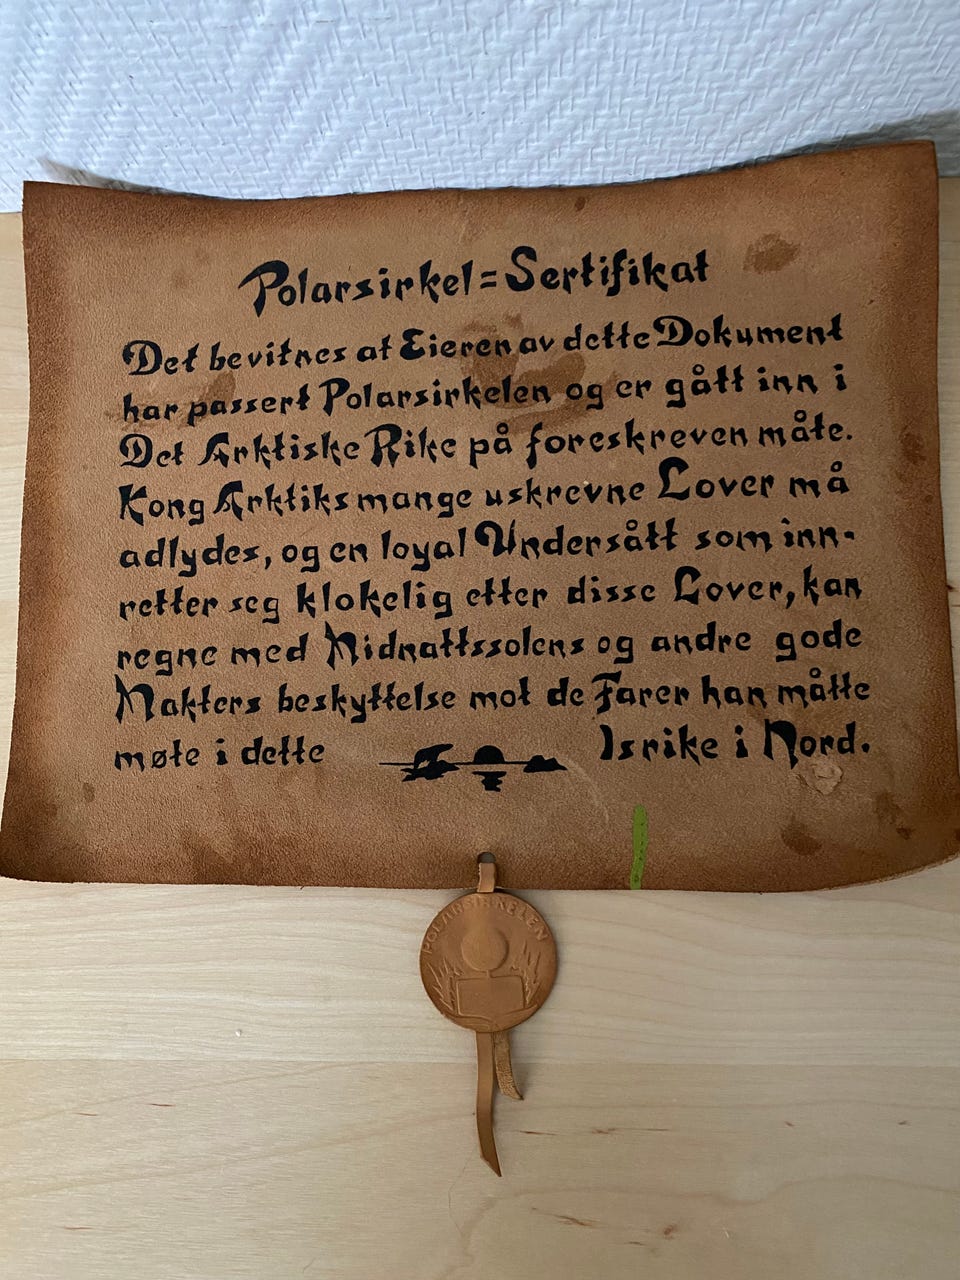 Polarsirkel=Sertifikat
Det bevitnes at Eieren av dette Dokument
har passert Polarsirkelen og er gått inn i
Det Arktiske Rike på foreskreven måte.
Kong Arktiks mange uskrevne Lover må
adlydes, og en loyal Undersått som inn-
retter seg klokelig etter disse Lover, kan
regne med Midnattssolens og andre gode
Makters beskyttelse mot de Farer han måtte
møte i dette Isrike i Nord.
POLARSIRKELEN